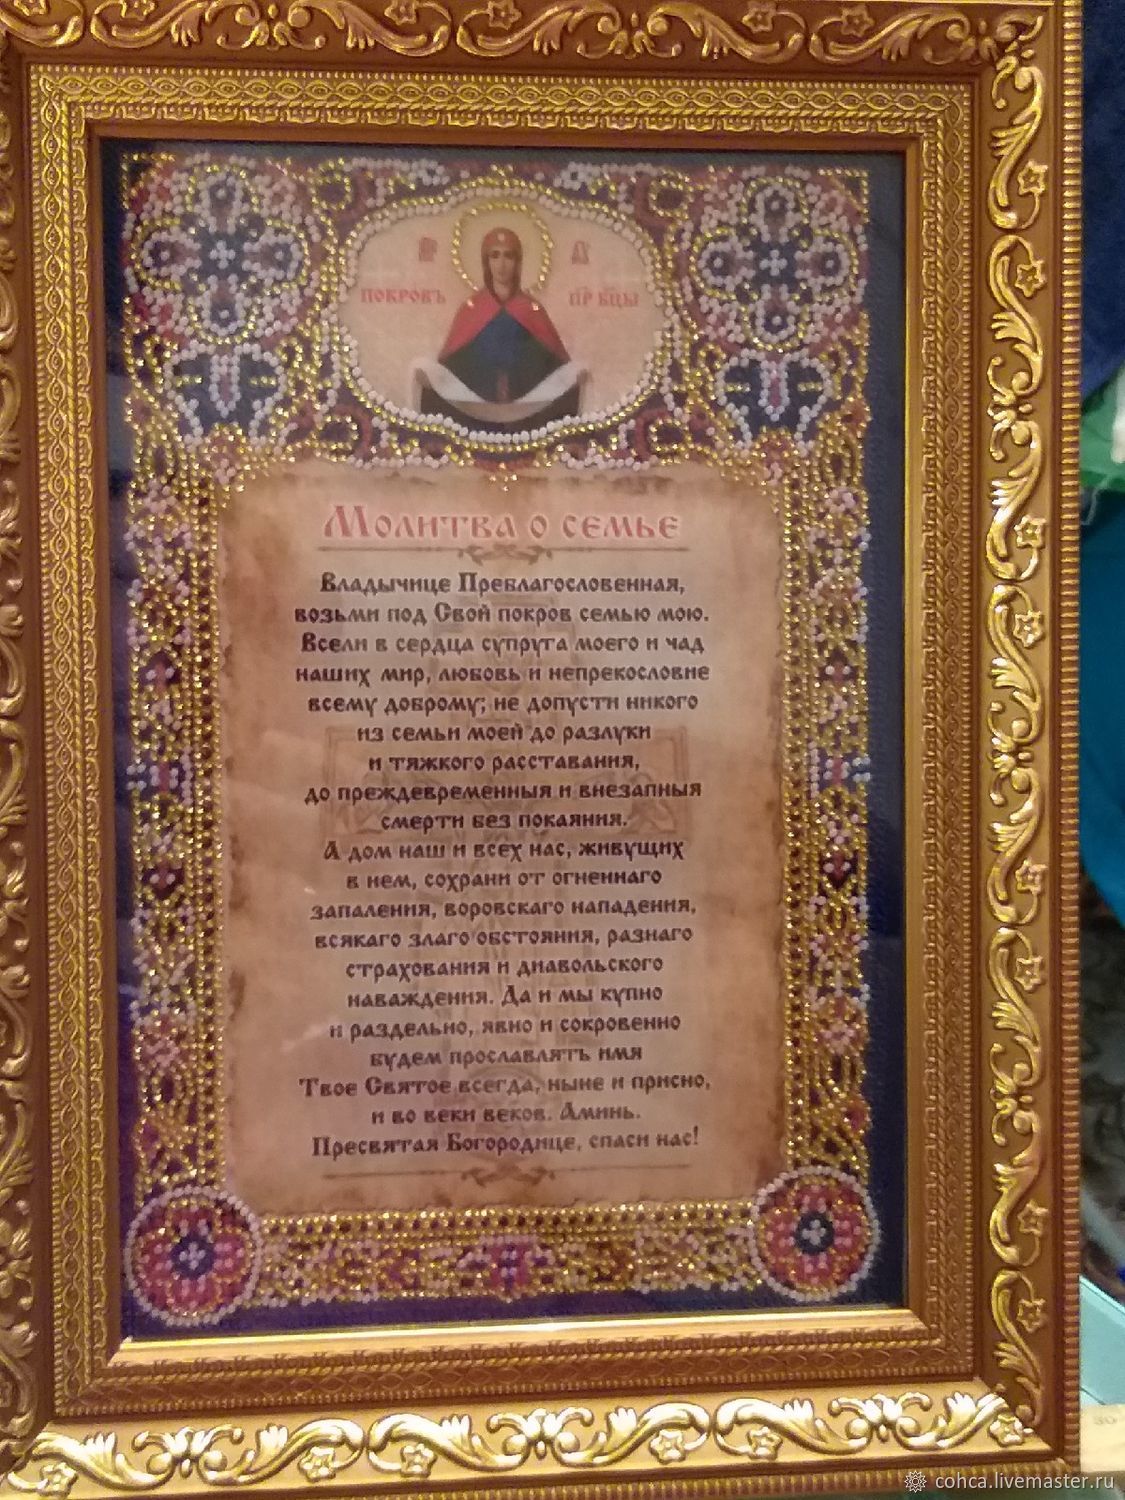 ПОКРОВЪ ПР БЦЫ
Молитва о семье
Владычице Преблагословенная,
возьми под Свой покров семью мою.
Всели в сердца супруга моего и чад
наших мир, любовь и непрекословие
всему доброму; не допусти никого
из семьи моей до разлуки
и тяжкого расставания,
до преждевременныя и внезапныя
смерти без покаяния.
А дом наш и всех нас, живущих
в нем, сохрани от огненнаго
запаления, воровскаго нападения,
всякаго злаго обстояния, разнаго
страхования и диавольского
наваждения. Да и мы купно
и раздельно, явно и сокровенно
будем прославлять имя
Твое Святое всегда, ныне и присно,
и во веки веков. Аминь.
Пресвятая Богородице, спаси нас!
cohca.livemaster.ru